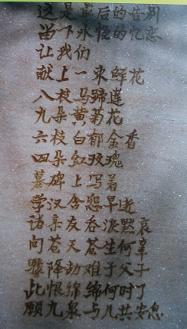 这是最后的告别
留下永恒的忆恋
让我们
献上一束鲜花
八枝马蹄莲
九朵黄菊花
六枝白郁金香
四朵红玫瑰
墓碑上写着
学汉含怨早逝
诸亲友吞泪默哀
问苍天苍生何辜
骤降劫难于父子
此恨绵绵何时了
愿九泉与儿共安息